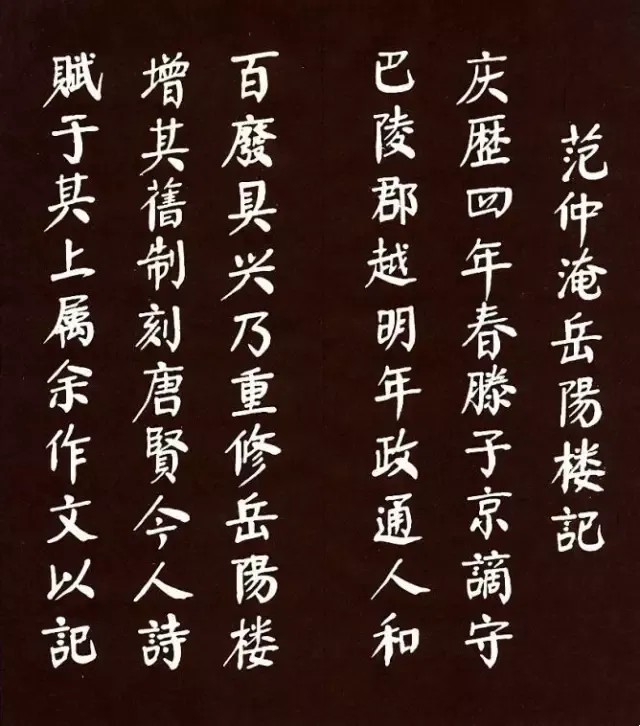 范仲淹岳陽楼記
庆歷四年春滕子京謫守
巴陵郡越明年政通人和
百廢具兴乃重修岳陽楼
增其舊制刻唐賢今人詩
賦于其上属余作文以記